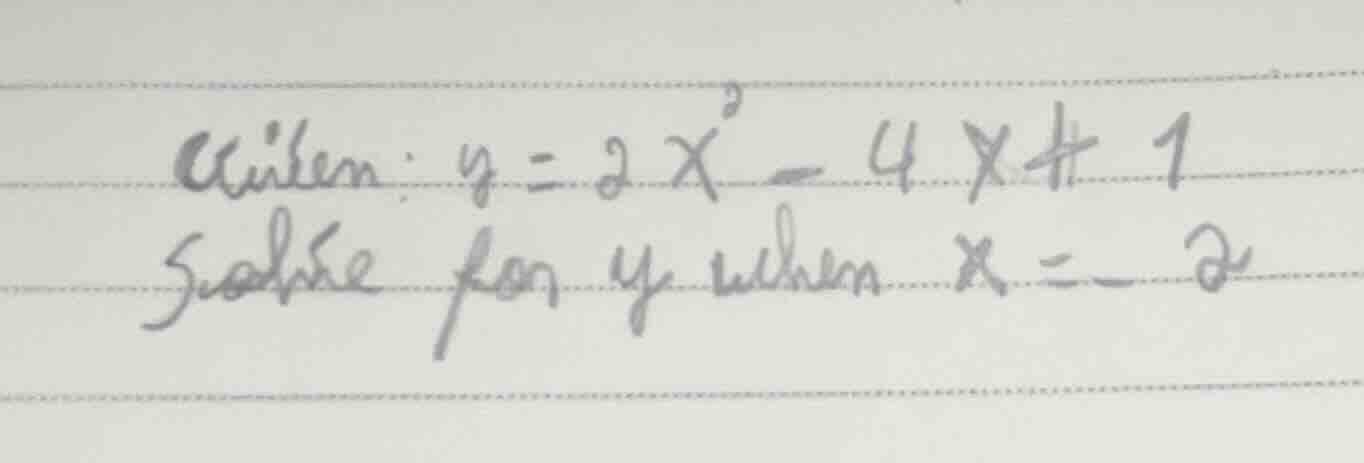 Given: y = 2x² - 4x + 1
Solve for y when x = - 2